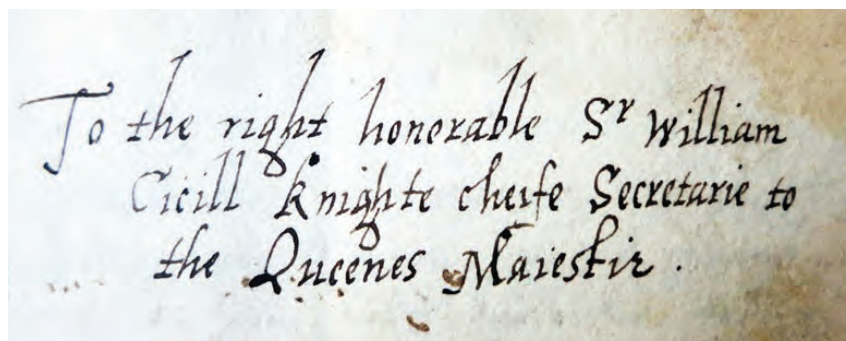 To the right honorable Sr William
Cicill Knighte cheife Secretarie to
the Queenes Maiestie .